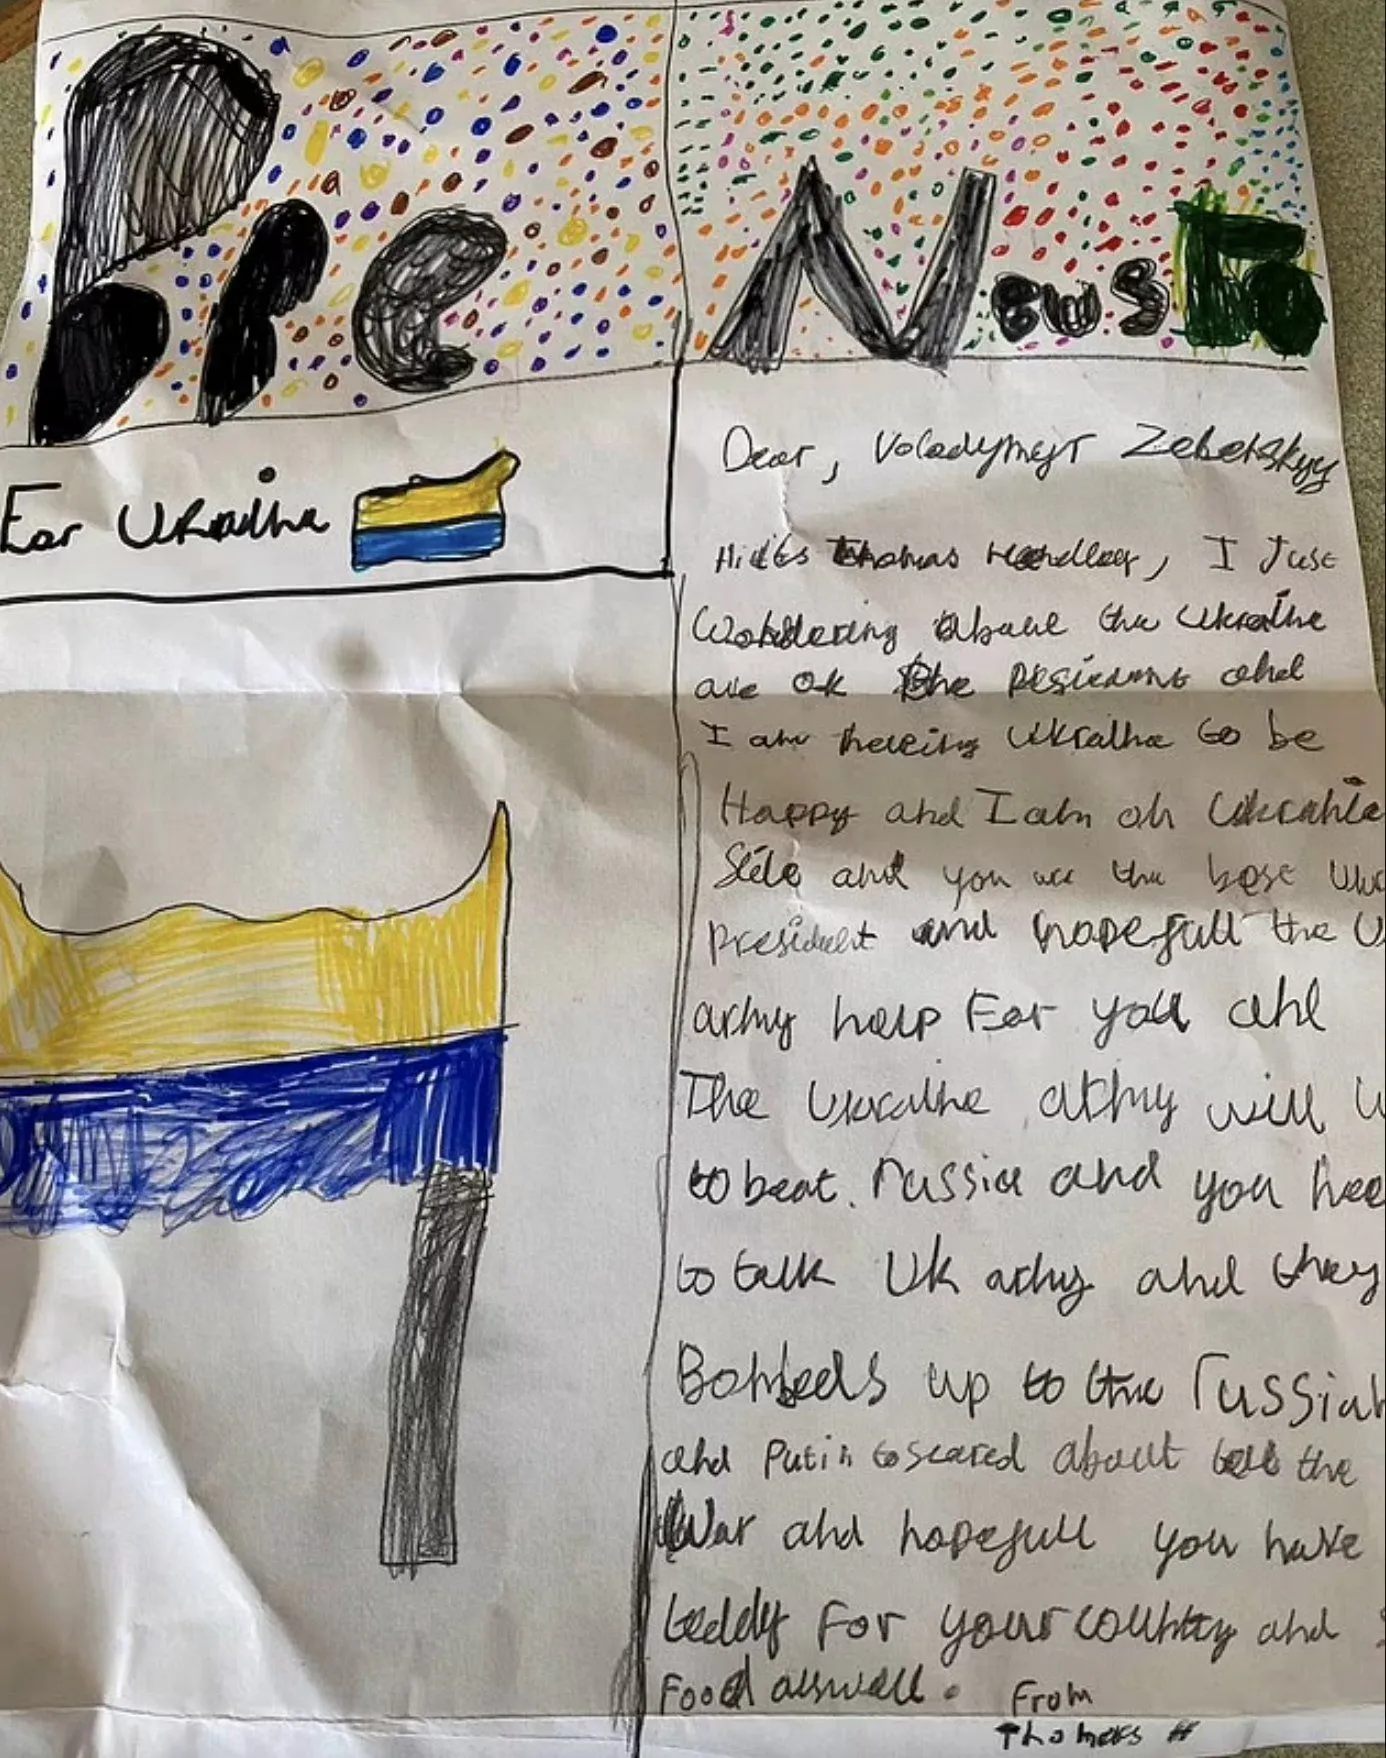 Pic
News
For Ukraihe
Dear, Voladymyr Zebetskyy
Hi its Thomas Handley, I Just
Wohdering about the Ukraihe
are ok the ahd
I am Ukraihe to be
Happy ahd I am oh Ukrahia
Side and you are the best
president and hopefull the
army help For you ahd
The Ukraihe army will
to beat. russia and you
to talk Uk army ahd they
up to the russiah
ahd Putin to scared about the
War ahd hopefull you have
teddy For your couhtry ahd
Food aswell. From
Thomas H